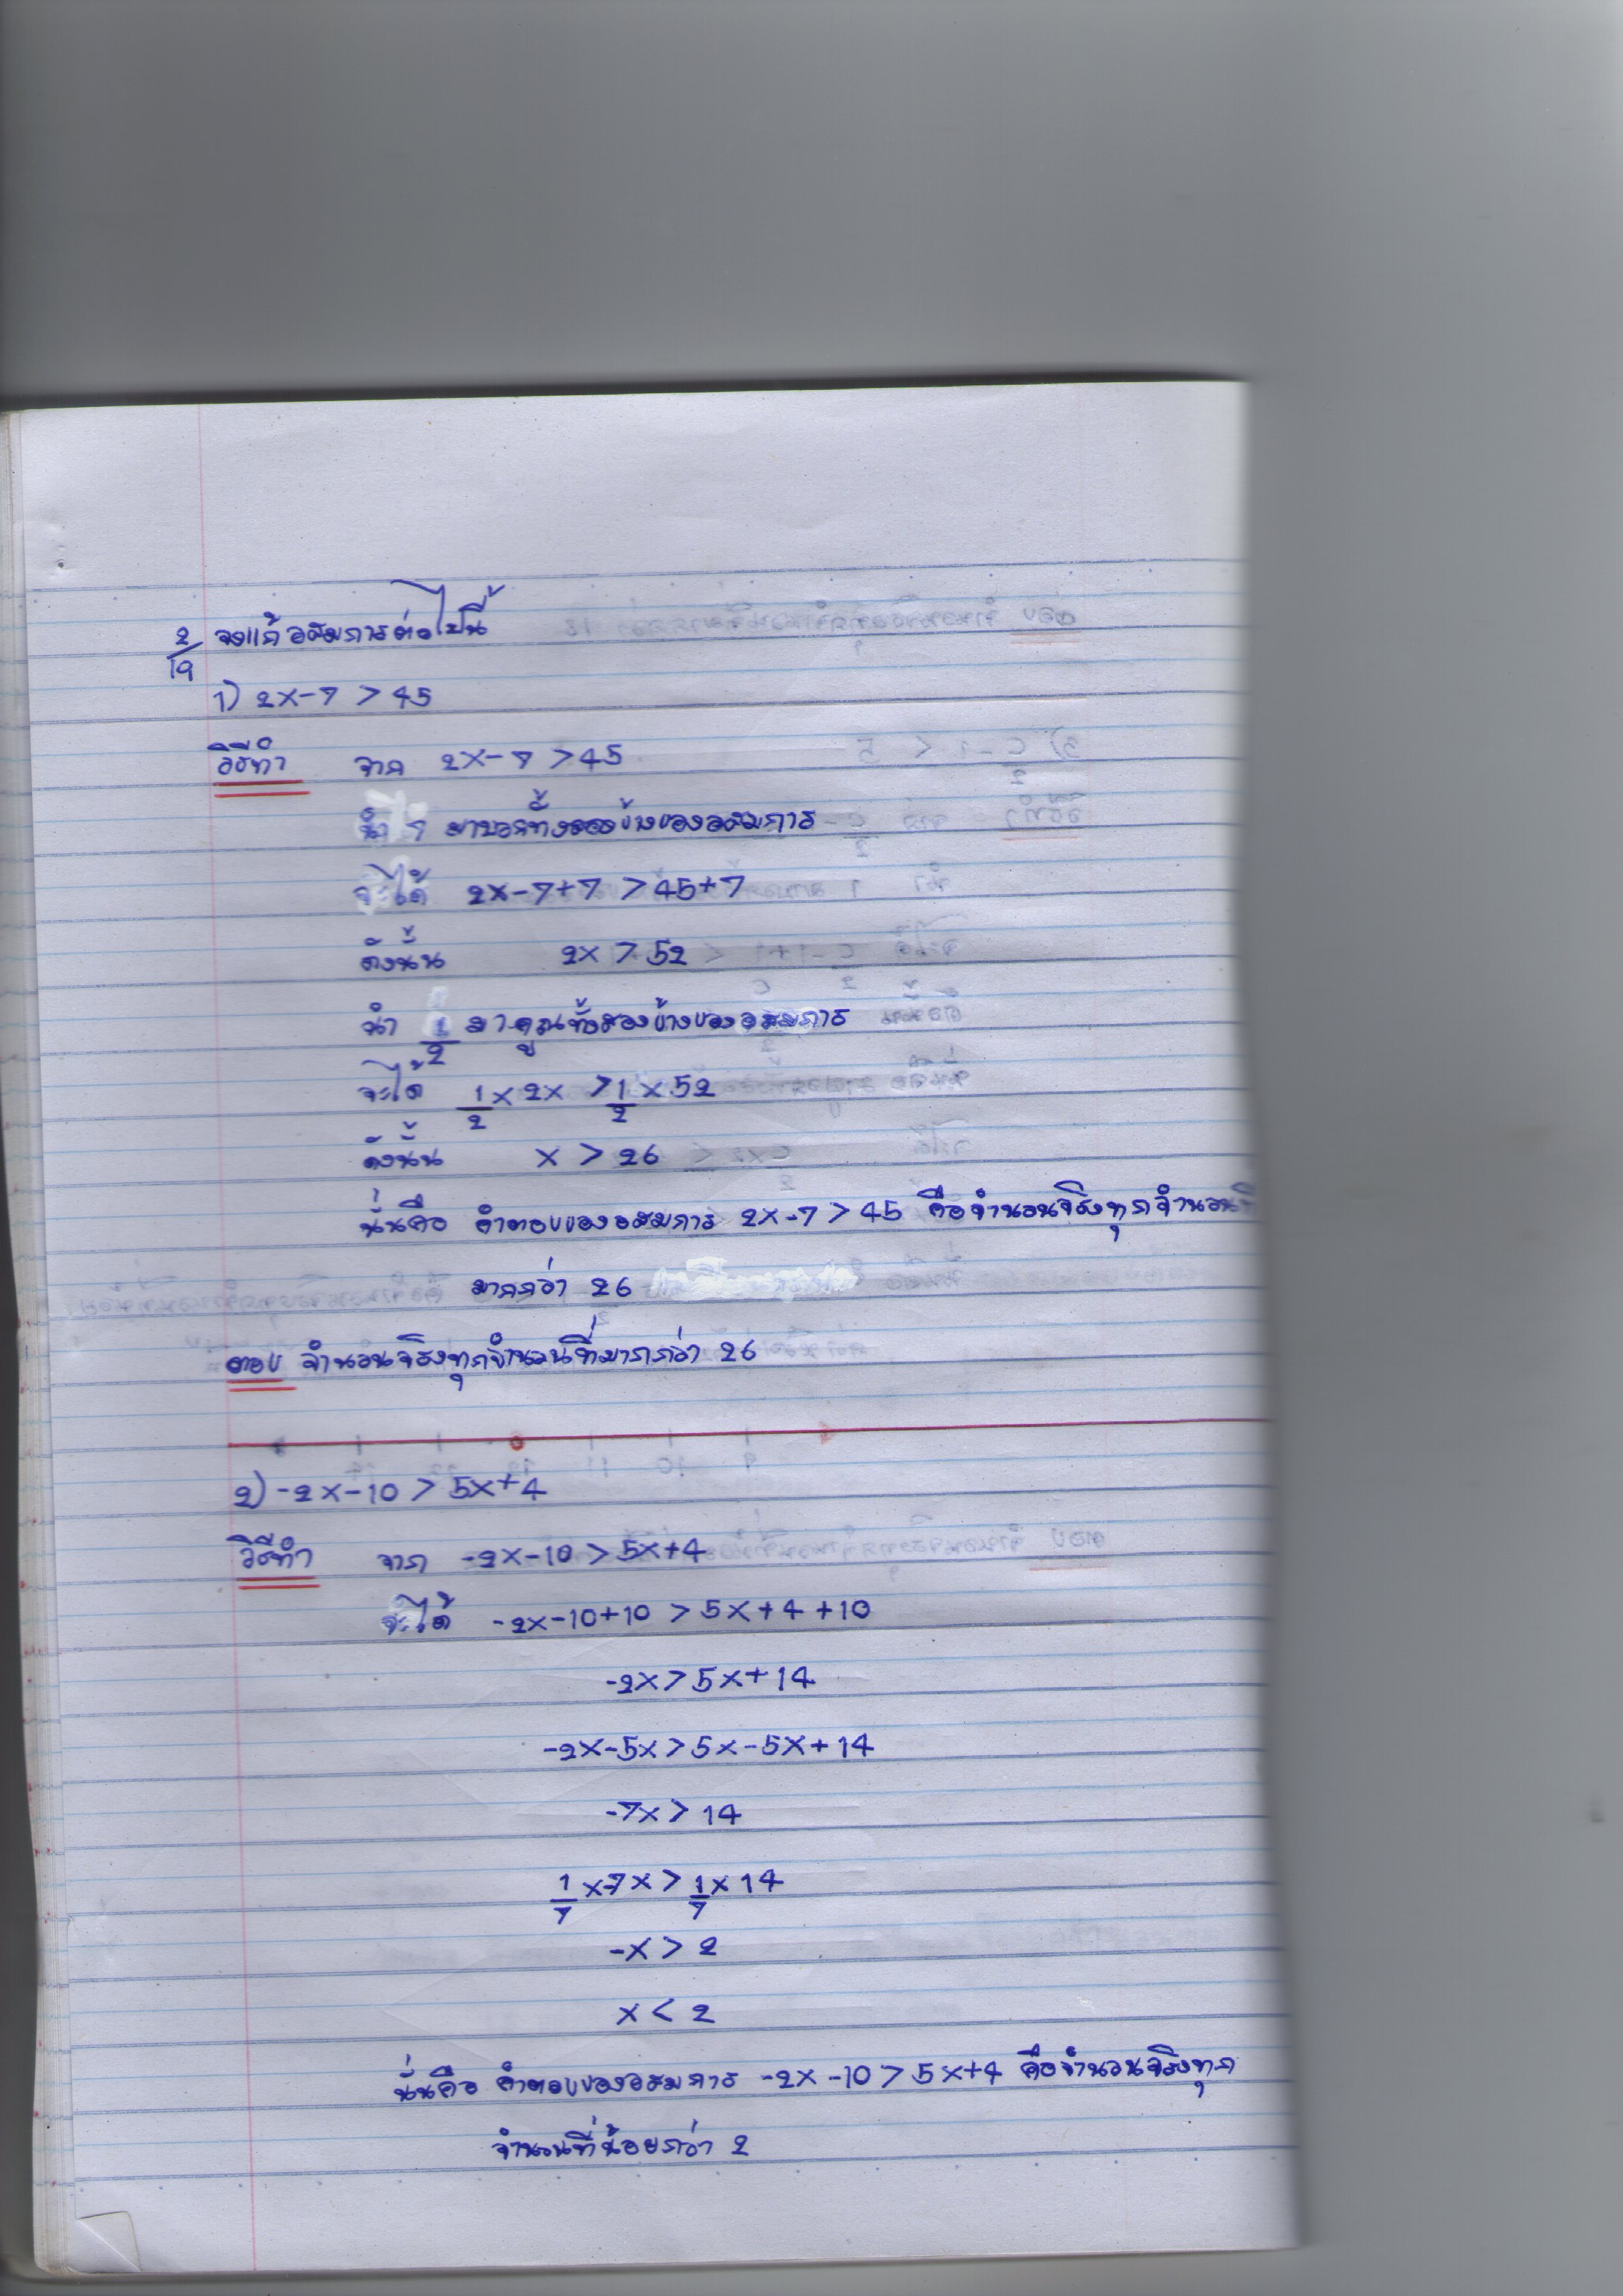 2/19 จงแก้อสมการต่อไปนี้
1) 2x-7 > 45
วิธีทำ จาก 2x-7 > 45
นำ 7 มาบวกทั้งสองข้างของอสมการ
จะได้ 2x-7+7 > 45+7
ดังนั้น 2x > 52
นำ 1/2 มาคูณทั้งสองข้างของอสมการ
จะได้ 1/2 × 2x > 1/2 × 52
ดังนั้น x > 26
นั่นคือ คำตอบของอสมการ 2x-7 > 45 คือจำนวนจริงทุกจำนวนที่
มากกว่า 26
ตอบ จำนวนจริงทุกจำนวนที่มากกว่า 26
2) -2x-10 > 5x+4
วิธีทำ จาก -2x-10 > 5x+4
จะได้ -2x-10+10 > 5x+4+10
-2x > 5x+14
-2x-5x > 5x-5x+14
-7x > 14
1/7 × -7x > 1/7 × 14
-x > 2
x < 2
นั่นคือ คำตอบของอสมการ -2x-10 > 5x+4 คือจำนวนจริงทุก
จำนวนที่น้อยกว่า 2